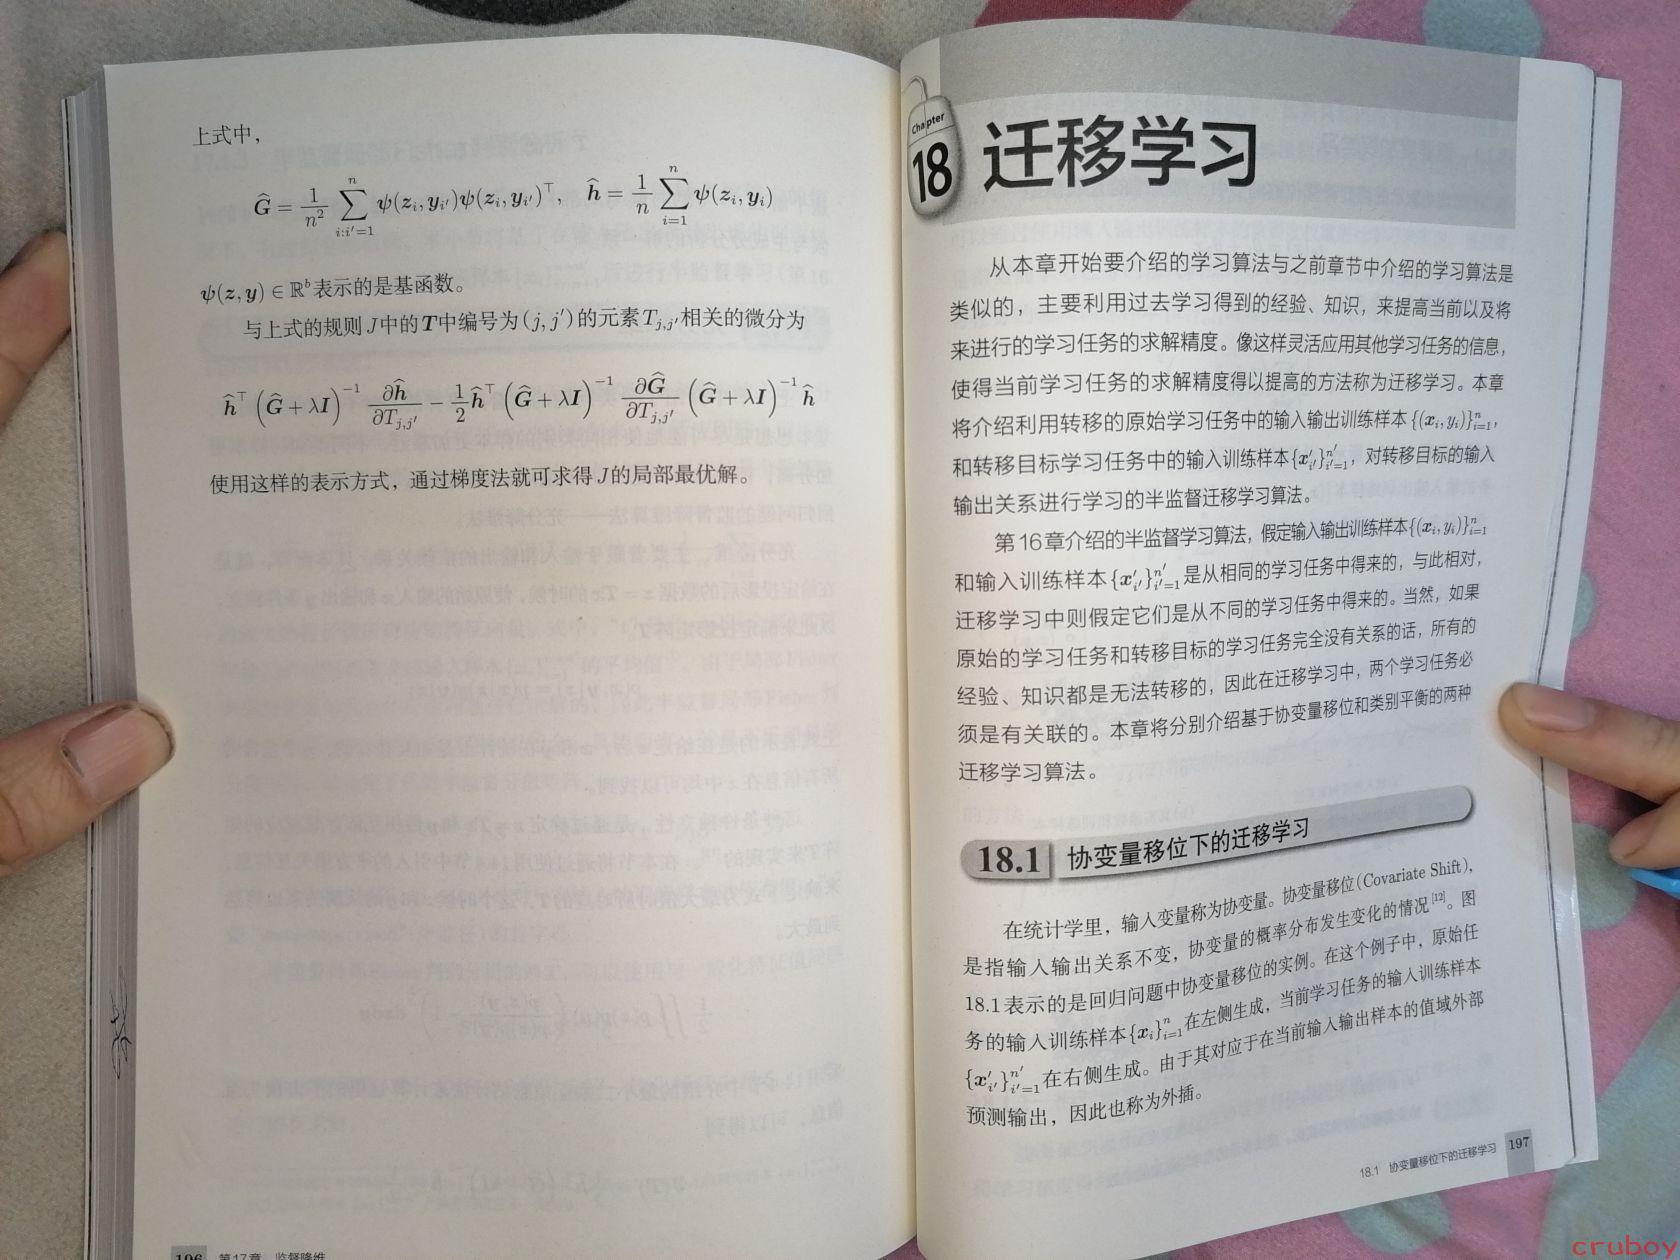 上式中，
Ĝ = 1/n² ∑_{i:i′=1}^{n} ψ(z_i, y_{i′})ψ(z_i, y_{i′})^⊤, ĥ = 1/n ∑_{i=1}^{n} ψ(z_i, y_i)
ψ(z, y) ∈ ℝ^b表示的是基函数。
与上式的规则J中的T中编号为(j, j′)的元素T_{j,j′}相关的微分为
ĥ^⊤ (Ĝ + λI)^{−1} ∂ĥ/∂T_{j,j′} − 1/2 ĥ^⊤ (Ĝ + λI)^{−1} ∂Ĝ/∂T_{j,j′} (Ĝ + λI)^{−1} ĥ
使用这样的表示方式，通过梯度法就可求得J的局部最优解。
196 第17章 监督降维
Chapter
18 迁移学习
从本章开始要介绍的学习算法与之前章节中介绍的学习算法是
类似的，主要利用过去学习得到的经验、知识，来提高当前以及将
来进行的学习任务的求解精度。像这样灵活应用其他学习任务的信息，
使得当前学习任务的求解精度得以提高的方法称为迁移学习。本章
将介绍利用转移的原始学习任务中的输入输出训练样本{(x_i, y_i)}_{i=1}^{n}，
和转移目标学习任务中的输入训练样本{x′_{i′}}_{i′=1}^{n′}，对转移目标的输入
输出关系进行学习的半监督迁移学习算法。
第16章介绍的半监督学习算法，假定输入输出训练样本{(x_i, y_i)}_{i=1}^{n}
和输入训练样本{x′_{i′}}_{i′=1}^{n′}是从相同的学习任务中得来的，与此相对，
迁移学习中则假定它们是从不同的学习任务中得来的。当然，如果
原始的学习任务和转移目标的学习任务完全没有关系的话，所有的
经验、知识都是无法转移的，因此在迁移学习中，两个学习任务必
须是有关联的。本章将分别介绍基于协变量移位和类别平衡的两种
迁移学习算法。
18.1 协变量移位下的迁移学习
在统计学里，输入变量称为协变量。协变量移位(Covariate Shift)，
是指输入输出关系不变，协变量的概率分布发生变化的情况[12]。图
18.1表示的是回归问题中协变量移位的实例。在这个例子中，原始任
务的输入训练样本{x_i}_{i=1}^{n}在左侧生成，当前学习任务的输入训练样本
{x′_{i′}}_{i′=1}^{n′}在右侧生成。由于其对应于在当前输入输出样本的值域外部
预测输出，因此也称为外插。
18.1 协变量移位下的迁移学习 197
cruboy